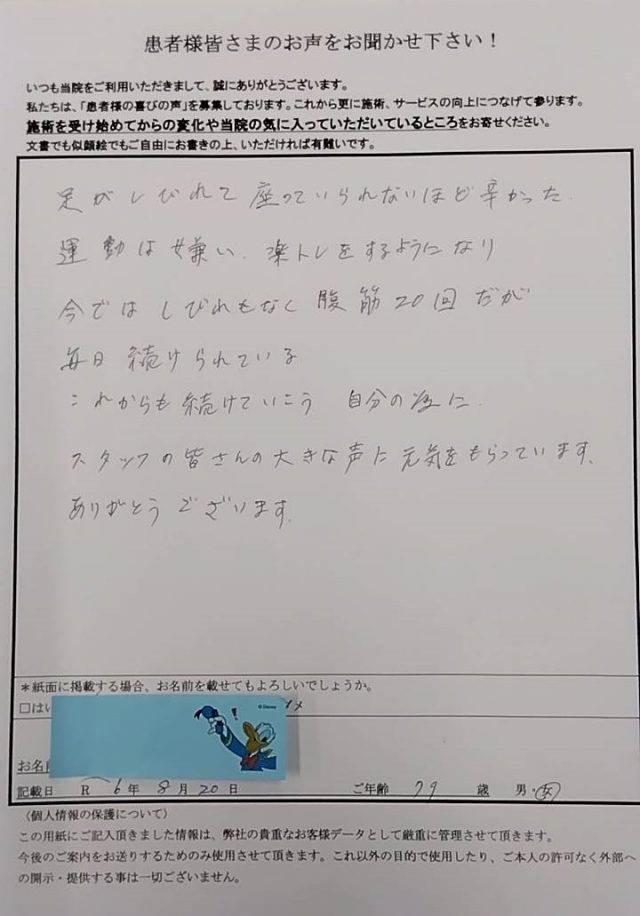 患者様皆さまのお声をお聞かせ下さい！
いつも当院をご利用いただきまして、誠にありがとうございます。
私たちは、「患者様の喜びの声」を募集しております。これから更に施術、サービスの向上につなげて参ります。
施術を受け始めてからの変化や当院の気に入っていただいているところをお寄せください。
文書でも似顔絵でもご自由にお書きの上、いただければ有難いです。
足がしびれて座っていられないほど辛かった.
運動は嫌い、楽トレをするようになり
今ではしびれもなく腹筋20回だが
毎日続けられている
これからも続けていこう 自分の為に.
スタッフの皆さんの大きな声に元気をもらっています、
ありがとうございます.
＊紙面に掲載する場合、お名前を載せてもよろしいでしょうか。
□はい
ダメ
© Disney
お名前
記載日 R 6年 8月 20日 ご年齢 79 歳 男・女
〈個人情報の保護について〉
この用紙にご記入頂きました情報は、弊社の貴重なお客様データとして厳重に管理させて頂きます。
今後のご案内をお送りするためのみ使用させて頂きます。これ以外の目的で使用したり、ご本人の許可なく外部へ
の開示・提供する事は一切ございません。